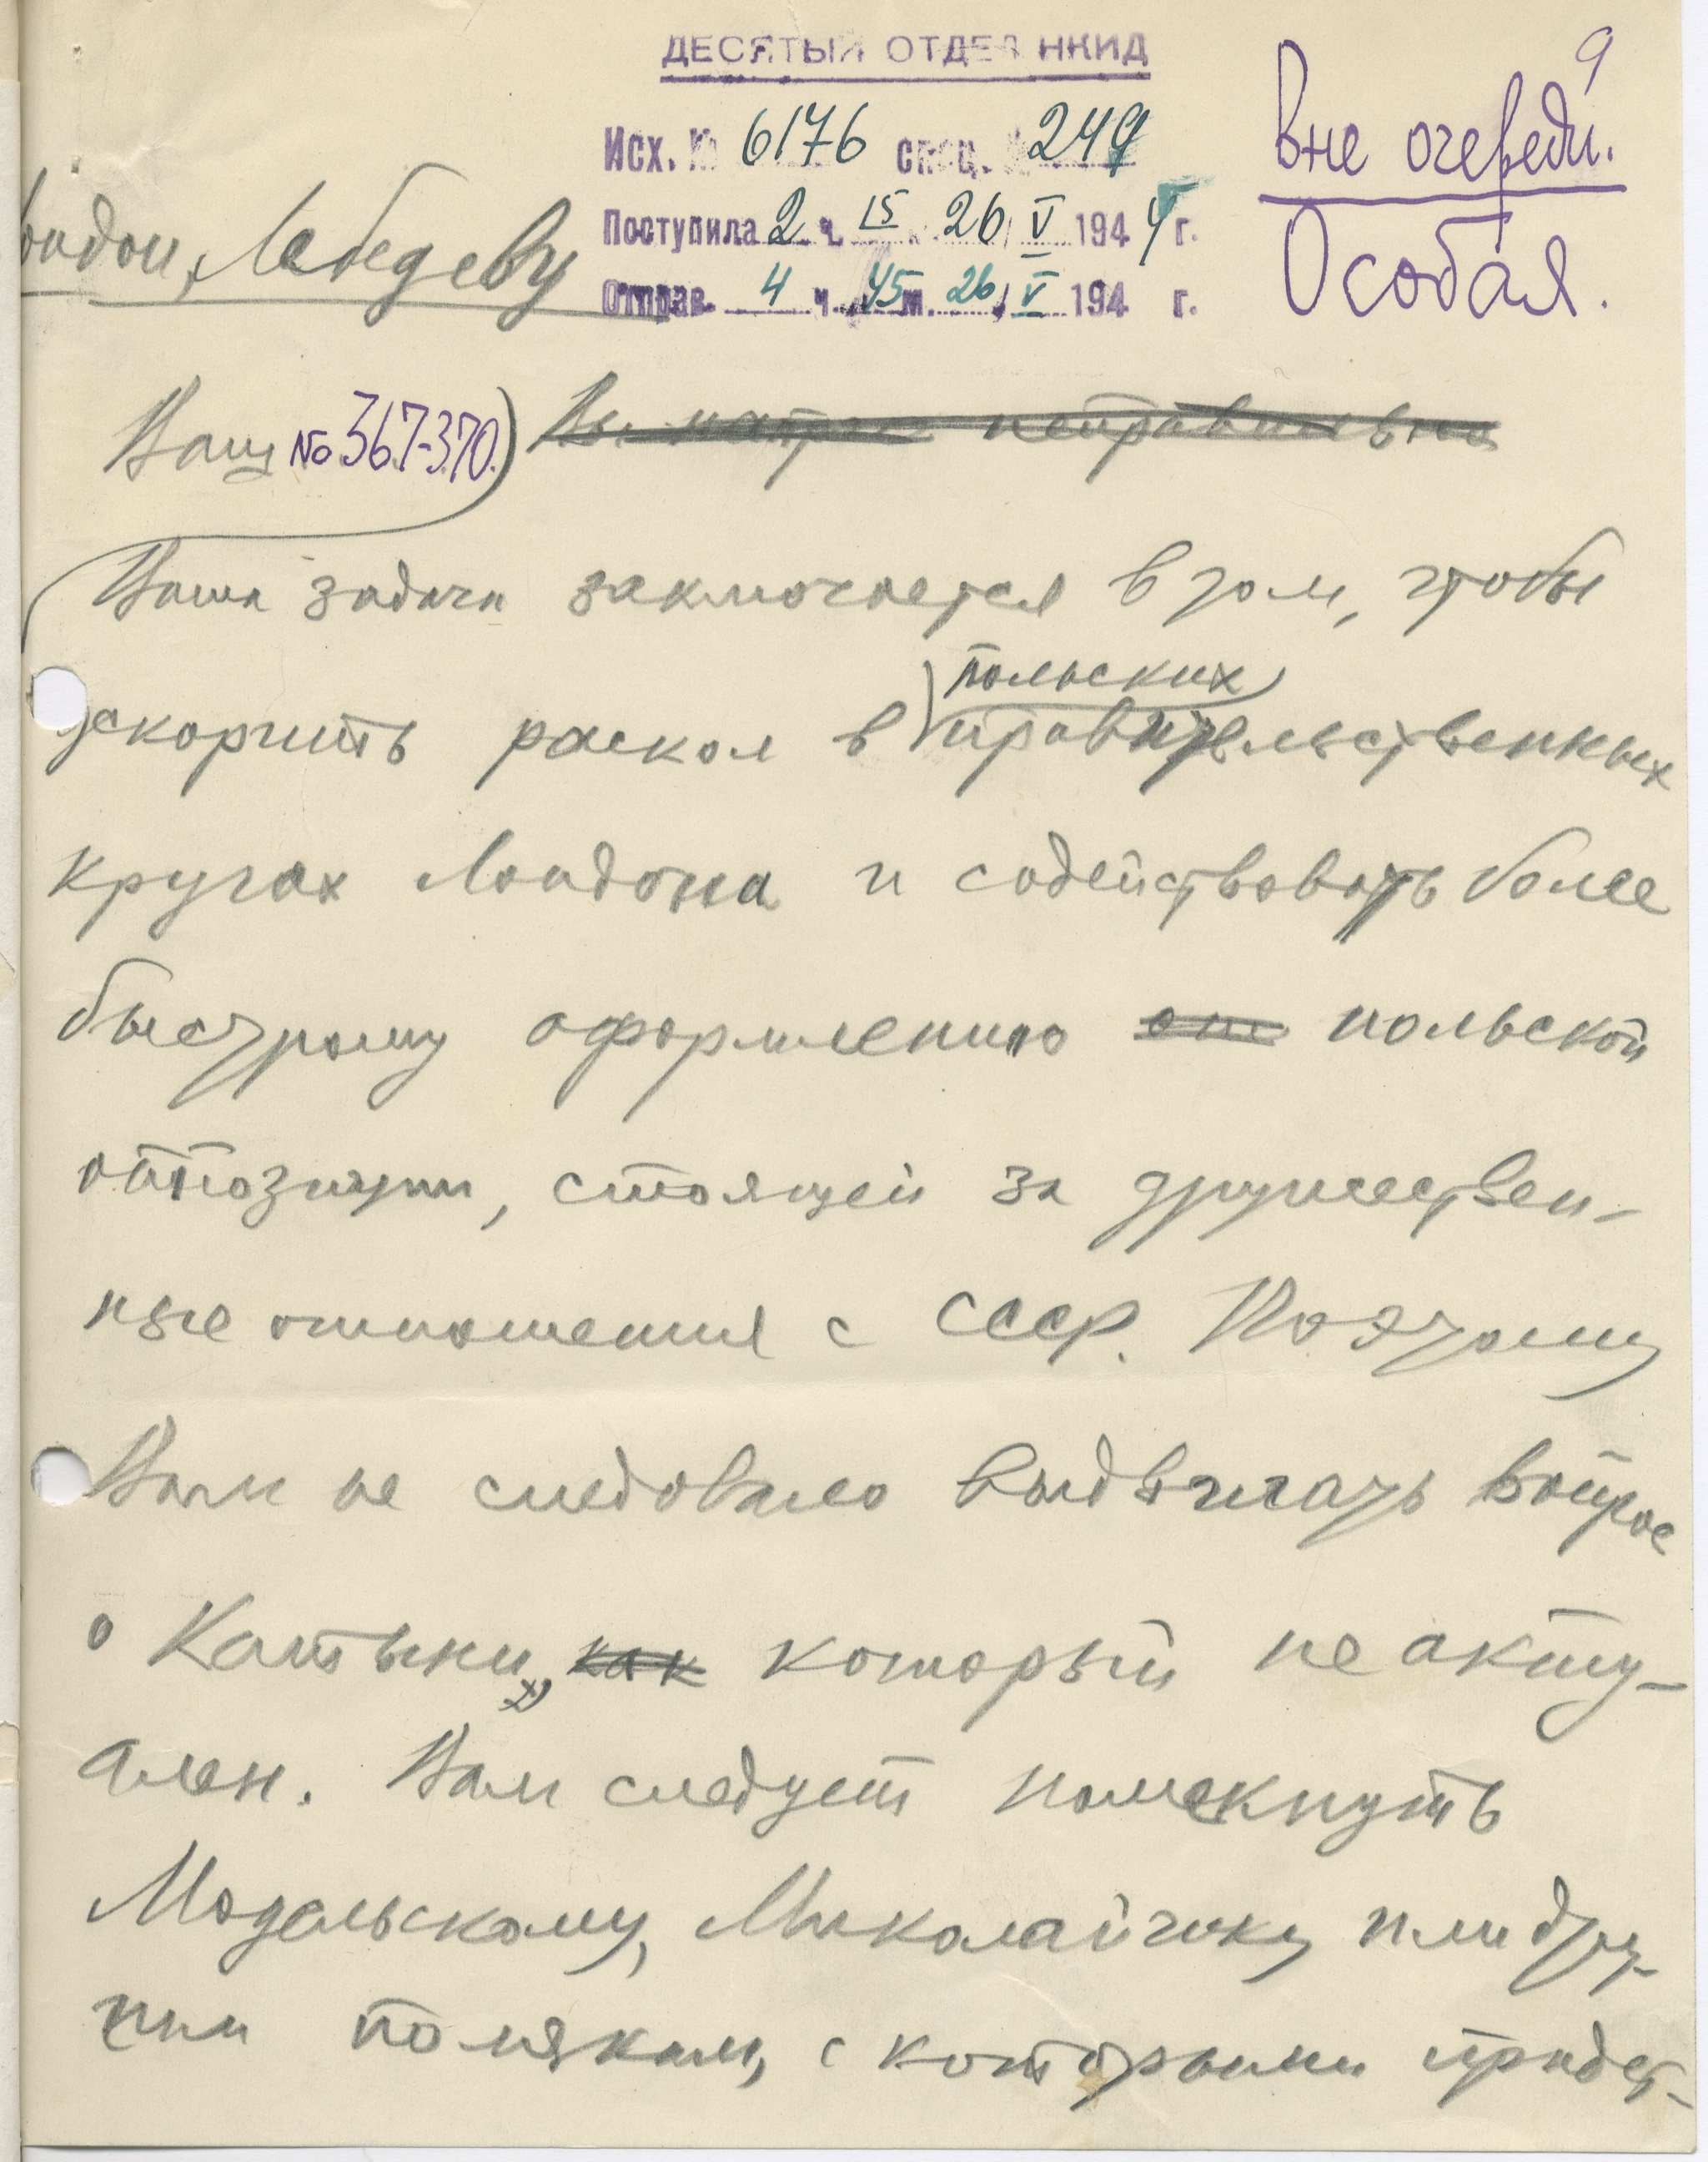 9
ДЕСЯТЫЙ ОТДЕЛ НКИД
Вне очереди.
Исх. № 6176 спец. № 249
Особая.
Поступила 2 ч. 15 м. 26/V 1944 г.
Лондон, Лебедеву
Отправ. 4 ч. 45 м. 26/V 194 г.
Ваш № 367-370.)
Ваша задача заключается в том, чтобы
польских
ускорить раскол в правительственных
кругах Лондона и содействовать более
быстрому оформлению польской
оппозиции, стоящей за дружествен-
ные отношения с СССР. Поэтому
Вам не следовало выдвигать вопрос
о Катыни, как который не акту-
ален. Вам следует намекнуть
Модельскому, Миколайчику или дру-
гим полякам, с которыми придет-